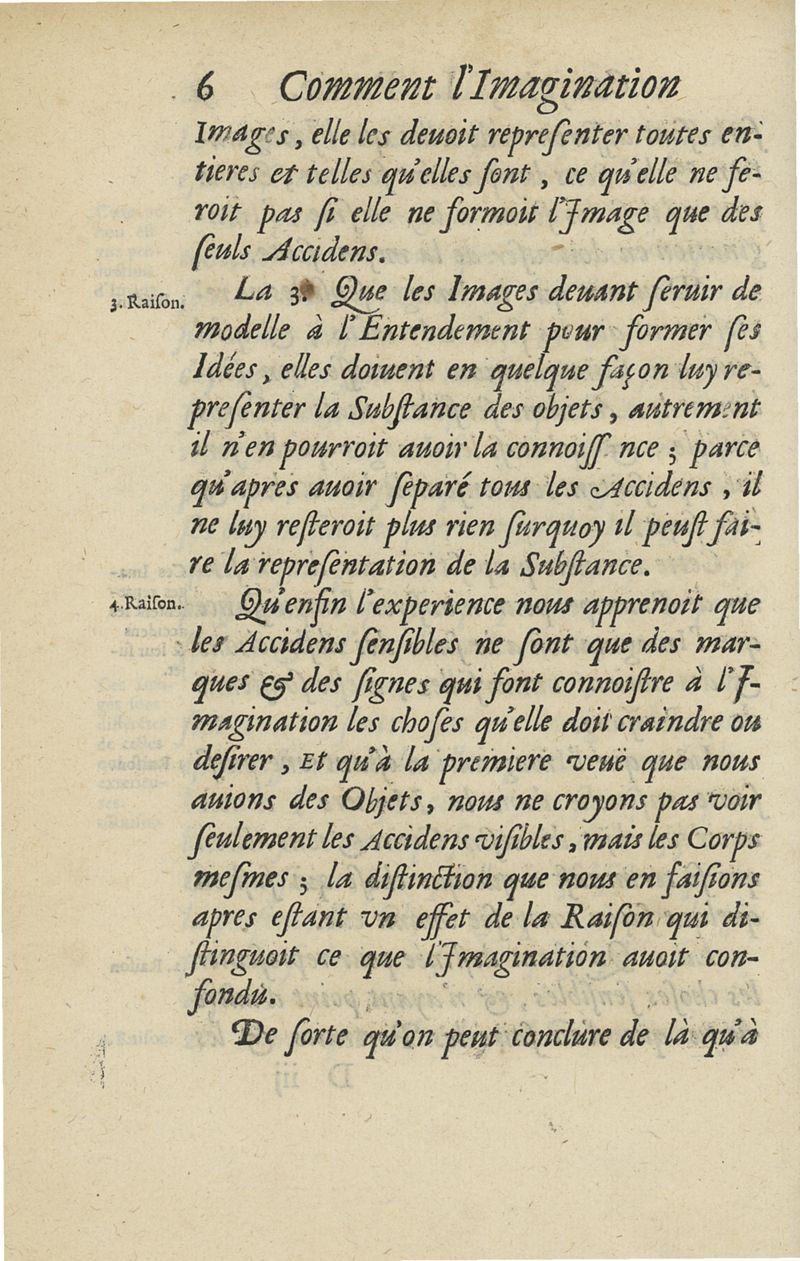 6 Comment l'Imagination
Images, elle les deuoit repreſenter toutes en-
tieres et telles qu'elles ſont, ce qu'elle ne fe-
roit pas ſi elle ne formoit l'Image que des
ſeuls Accidens.
3. Raiſon.
La 3. Que les Images deuant ſeruir de
modelle à l'Entendement pour former ſes
Idées, elles doiuent en quelque façon luy re-
preſenter la Subſtance des objets, autrement
il n'en pourroit auoir la connoiſſ nce; parce
qu'apres auoir ſeparé tous les Accidens, il
ne luy reſteroit plus rien ſurquoy il peuſt fai-
re la repreſentation de la Subſtance.
4. Raiſon.
Qu'enfin l'experience nous apprenoit que
les Accidens ſenſibles ne ſont que des mar-
ques & des ſignes qui font connoiſtre à l'I-
magination les choſes qu'elle doit craindre ou
deſirer, Et qu'à la premiere veuë que nous
auions des Objets, nous ne croyons pas voir
ſeulement les Accidens viſibles, mais les Corps
meſmes; la diſtinction que nous en faiſions
apres eſtant vn effet de la Raiſon qui di-
ſtinguoit ce que l'Imagination auoit con-
fondu.
De ſorte qu'on peut conclure de là qu'à